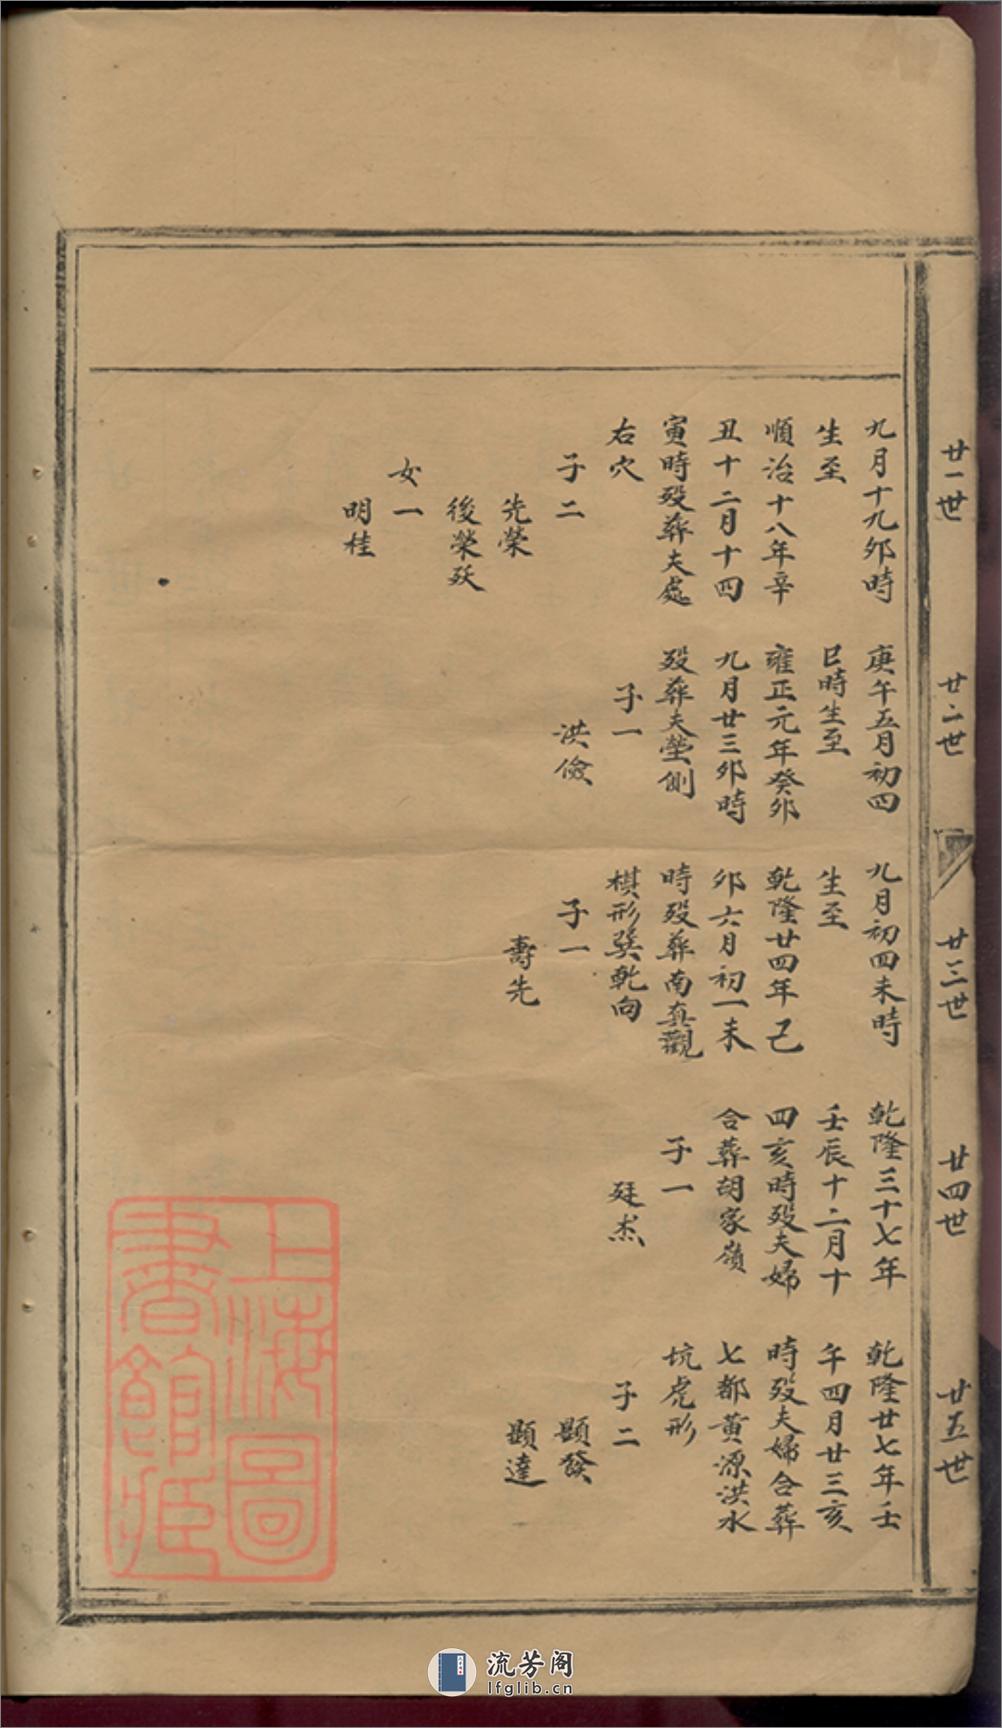 廿一世
九月十九卯時
生至
順治十八年辛
丑十二月十四
寅時殁葬夫處
右穴
子二
先榮
後榮殀
女一
明桂
廿二世
庚午五月初四
巳時生至
雍正元年癸卯
九月廿三卯時
殁葬夫塋側
子一
洪儉
廿三世
九月初四未時
生至
乾隆廿四年己
卯六月初一未
時殁葬南真觀
棋形巽乾向
子一
壽先
廿四世
乾隆三十七年
壬辰十二月十
四亥時殁夫婦
合葬胡家嶺
子一
廷杰
廿五世
乾隆廿七年壬
午四月廿三亥
時殁夫婦合葬
七都黃源洪水
坑虎形
子二
顯發
顯達
上海圖
書館藏
流芳阁
lfglib.cn